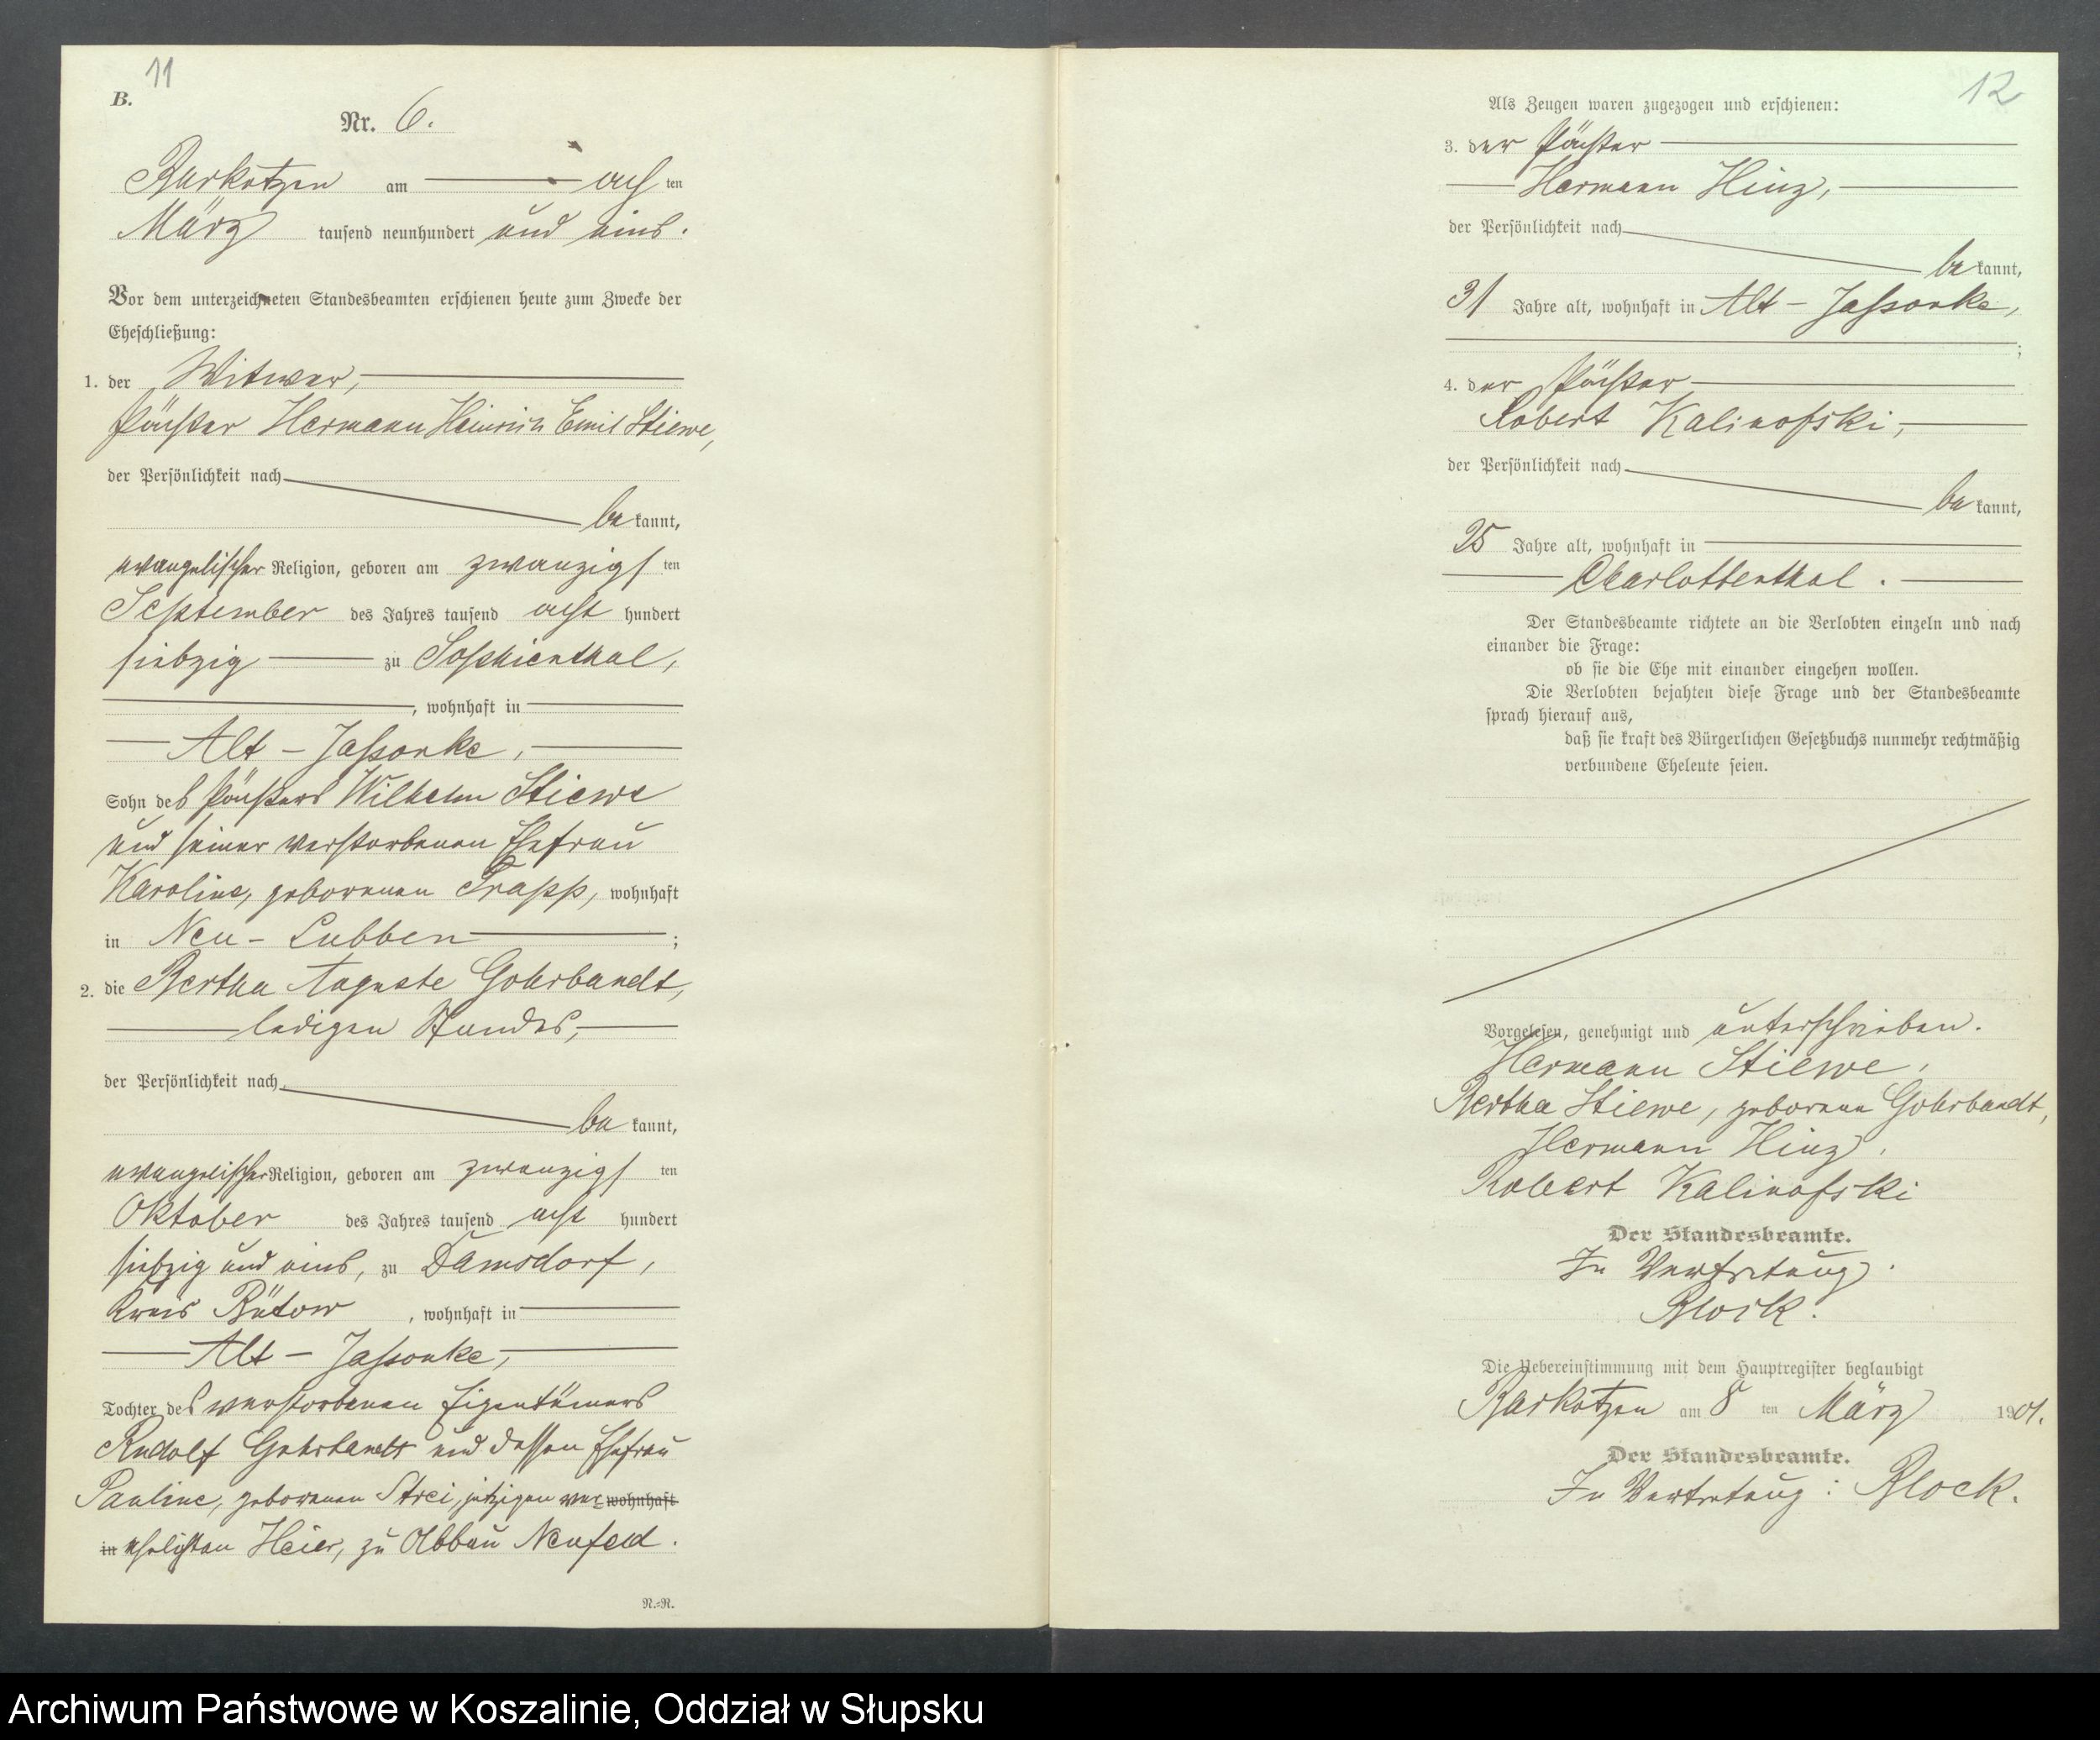 11
B.
Nr. 6.
Barkotzen am acht ten
März tausend neunhundert und eins.
Vor dem unterzeichneten Standesbeamten erschienen heute zum Zwecke der
Eheschließung:
1. der Witwer,
Pächter Hermann Heinrich Emil Stiewe,
der Persönlichkeit nach
be kannt,
evangelischer Religion, geboren am zwanzigs ten
September des Jahres tausend acht hundert
siebzig zu Sophienthal,
, wohnhaft in
Alt - Jassonke,
Sohn des Pächters Wilhelm Stiewe
und seiner verstorbenen Ehefrau
Karoline, geborenen Trapp, wohnhaft
in Neu - Lubben ;
2. die Bertha Auguste Gohrbandt,
ledigen Standes,
der Persönlichkeit nach
be kannt,
evangelischer Religion, geboren am zwanzigs ten
Oktober des Jahres tausend acht hundert
siebzig und eins, zu Damsdorf,
Kreis Bütow , wohnhaft in
Alt - Jassonke,
Tochter des verstorbenen Eigentümers
Rudolf Gohrbandt und dessen Ehefrau
Pauline, geborenen Strei, jetzigen ver- wohnhaft
in ehelichten Heier, zu Abbau Neufeld.
N.=R.
12
Als Zeugen waren zugezogen und erschienen:
3. der Pächter
Hermann Hinz,
der Persönlichkeit nach
be kannt,
31 Jahre alt, wohnhaft in Alt - Jassonke,
;
4. der Pächter
Robert Kalinofski,
der Persönlichkeit nach
be kannt,
25 Jahre alt, wohnhaft in
Charlottenthal.
Der Standesbeamte richtete an die Verlobten einzeln und nach
einander die Frage:
ob sie die Ehe mit einander eingehen wollen.
Die Verlobten bejahten diese Frage und der Standesbeamte
sprach hierauf aus,
daß sie kraft des Bürgerlichen Gesetzbuchs nunmehr rechtmäßig
verbundene Eheleute seien.
Vorgelesen, genehmigt und unterschrieben.
Hermann Stiewe,
Bertha Stiewe, geborene Gohrbandt,
Hermann Hinz,
Robert Kalinofski
Der Standesbeamte.
In Vertretung.
Block.
Die Uebereinstimmung mit dem Hauptregister beglaubigt
Barkotzen am 8 ten März 1901.
Der Standesbeamte.
In Vertretung: Block.
Archiwum Państwowe w Koszalinie, Oddział w Słupsku